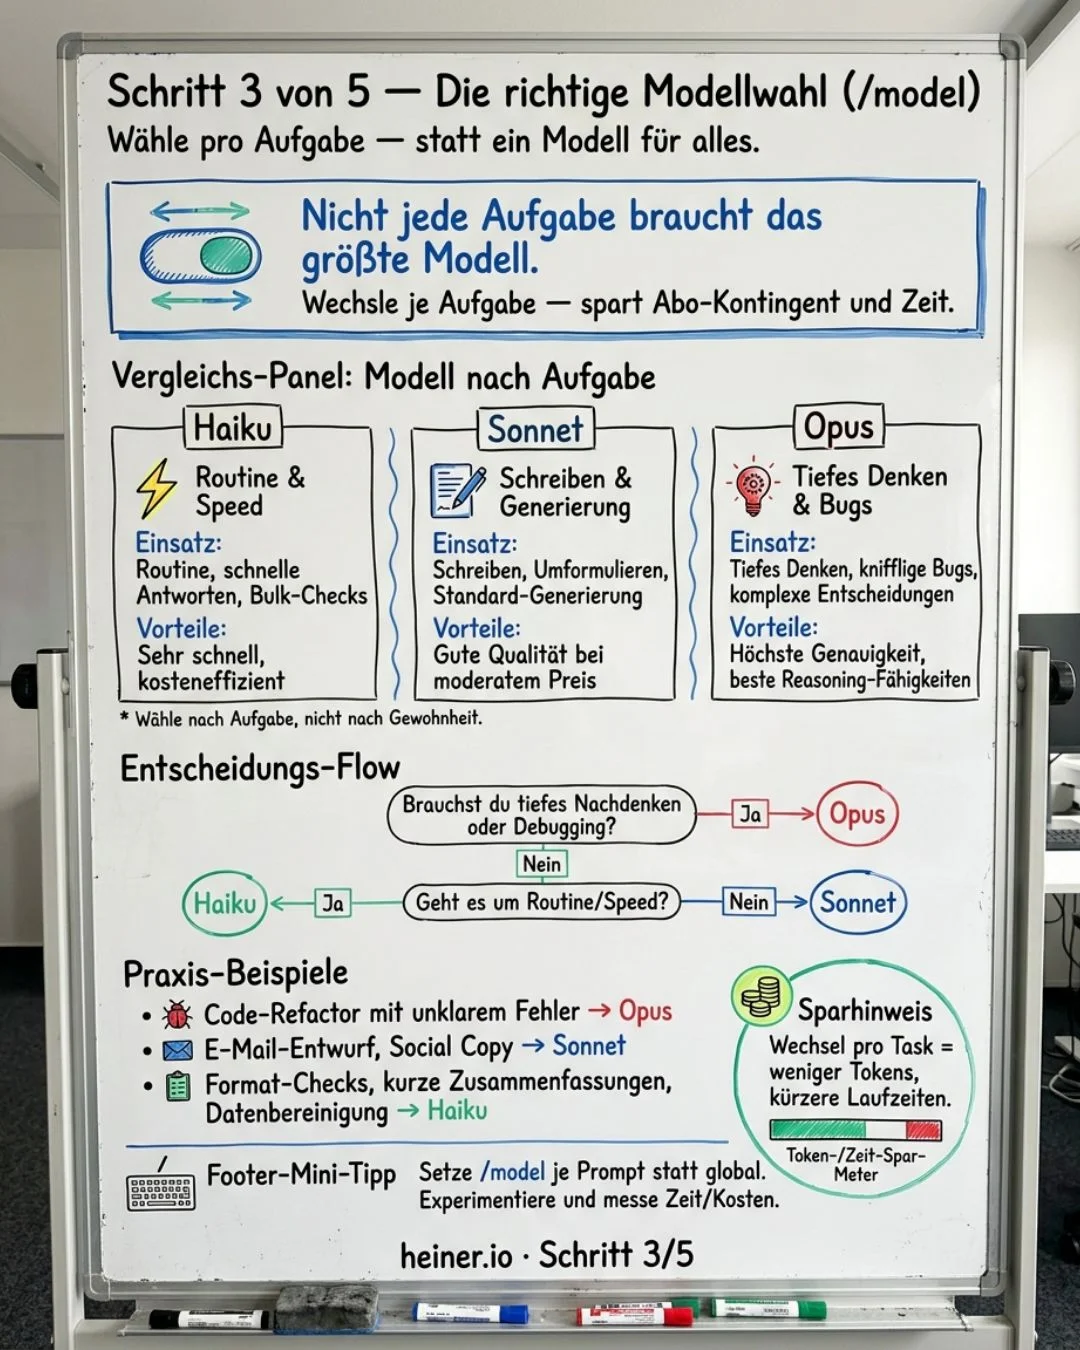 Schritt 3 von 5 — Die richtige Modellwahl (/model)
Wähle pro Aufgabe — statt ein Modell für alles.
Nicht jede Aufgabe braucht das
größte Modell.
Wechsle je Aufgabe — spart Abo-Kontingent und Zeit.
Vergleichs-Panel: Modell nach Aufgabe
Haiku
Routine &
Speed
Einsatz:
Routine, schnelle
Antworten, Bulk-Checks
Vorteile:
Sehr schnell,
kosteneffizient
Sonnet
Schreiben &
Generierung
Einsatz:
Schreiben, Umformulieren,
Standard-Generierung
Vorteile:
Gute Qualität bei
moderatem Preis
Opus
Tiefes Denken
& Bugs
Einsatz:
Tiefes Denken, knifflige Bugs,
komplexe Entscheidungen
Vorteile:
Höchste Genauigkeit,
beste Reasoning-Fähigkeiten
* Wähle nach Aufgabe, nicht nach Gewohnheit.
Entscheidungs-Flow
Brauchst du tiefes Nachdenken
oder Debugging?
Ja
Opus
Nein
Haiku
Ja
Geht es um Routine/Speed?
Nein
Sonnet
Praxis-Beispiele
• Code-Refactor mit unklarem Fehler → Opus
• E-Mail-Entwurf, Social Copy → Sonnet
• Format-Checks, kurze Zusammenfassungen,
Datenbereinigung → Haiku
Sparhinweis
Wechsel pro Task =
weniger Tokens,
kürzere Laufzeiten.
Token-/Zeit-Spar-
Meter
Footer-Mini-Tipp
Setze /model je Prompt statt global.
Experimentiere und messe Zeit/Kosten.
heiner.io · Schritt 3/5